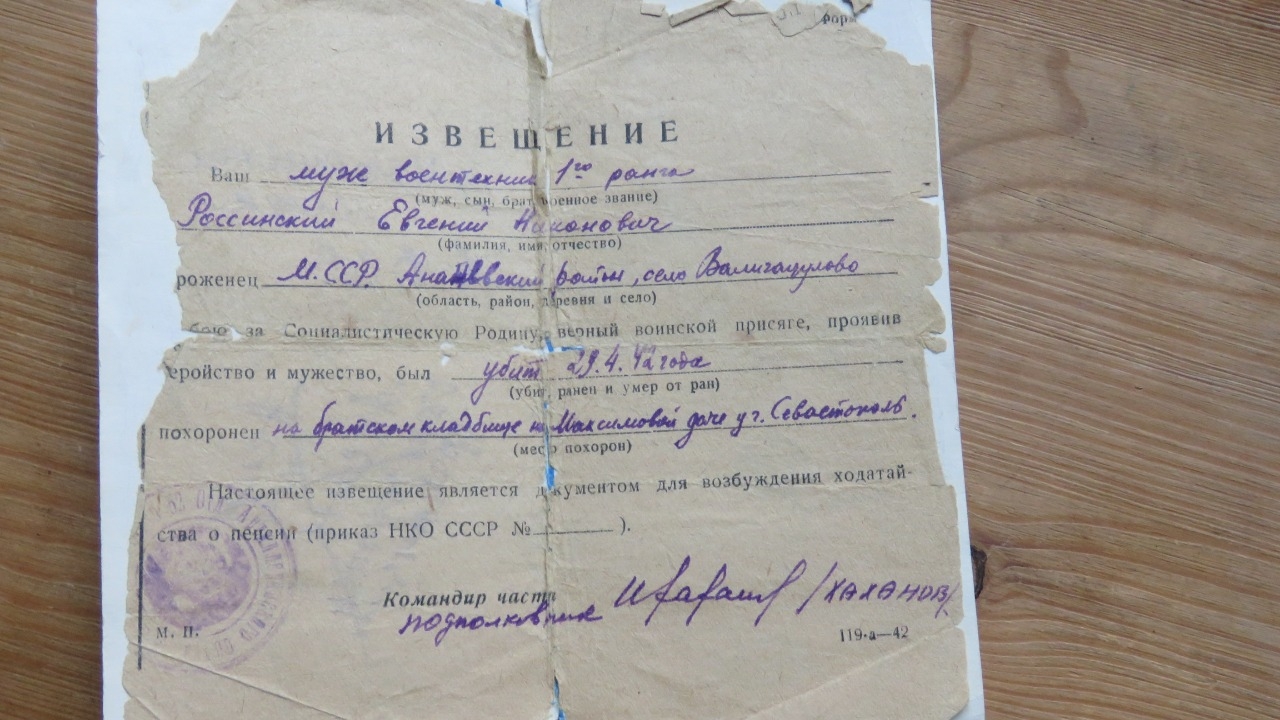 форм
ИЗВЕЩЕНИЕ
Ваш муж воентехник 1го ранга
(муж, сын, брат, военное звание)
Россинский Евгений
(фамилия, имя, отчество)
роженец М.ССР. район, село Валигоцулово
(область, район, деревня и село)
бою за Социалистическую Родину, верный воинской присяге, проявив
еройство и мужество, был убит 29.4.42 года
(убит, ранен и умер от ран)
похоронен на братском кладбище на Максимовой даче у г. Севастополь.
(место похорон)
Настоящее извещение является документом для возбуждения ходатай-
ства о пенсии (приказ НКО СССР № ).
Командир части
подполковник /ХАХАНОВ/
М. П.
119-а—42